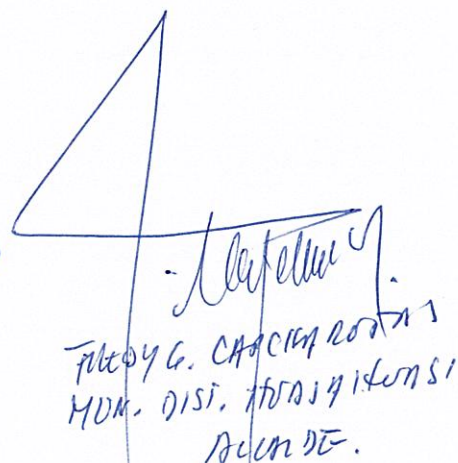 FREDY G. CHACCHA ROJAS
MUN. DIST. HUASAHUASI
ALCALDE.